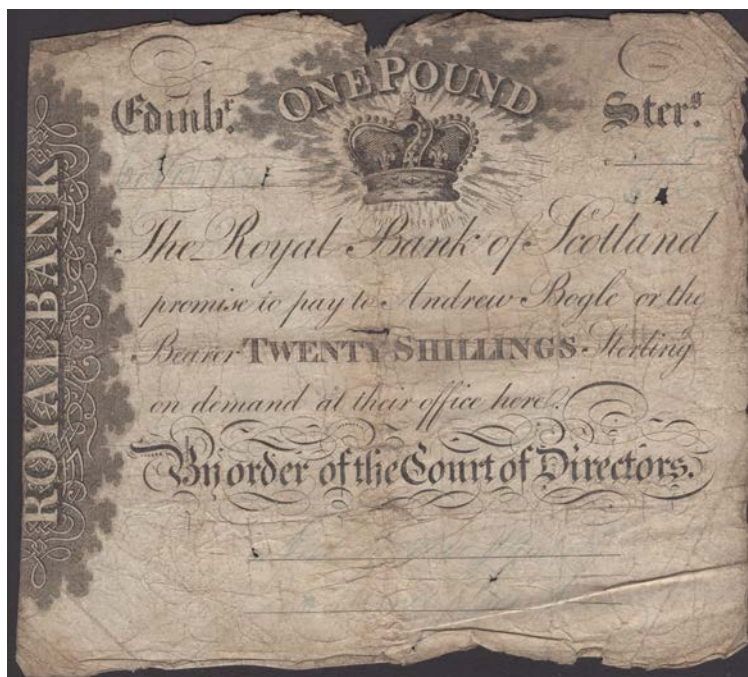 ONE POUND
Edinbr. Sterg.
The Royal Bank of Scotland
promise to pay to Andrew Bogle or the
Bearer TWENTY SHILLINGS Sterling
on demand at their office here.
By order of the Court of Directors.
ROYAL BANK